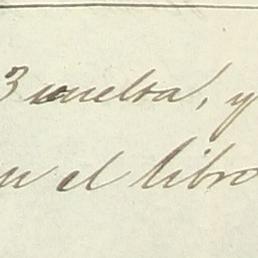 3 vuelta, y
en el libro